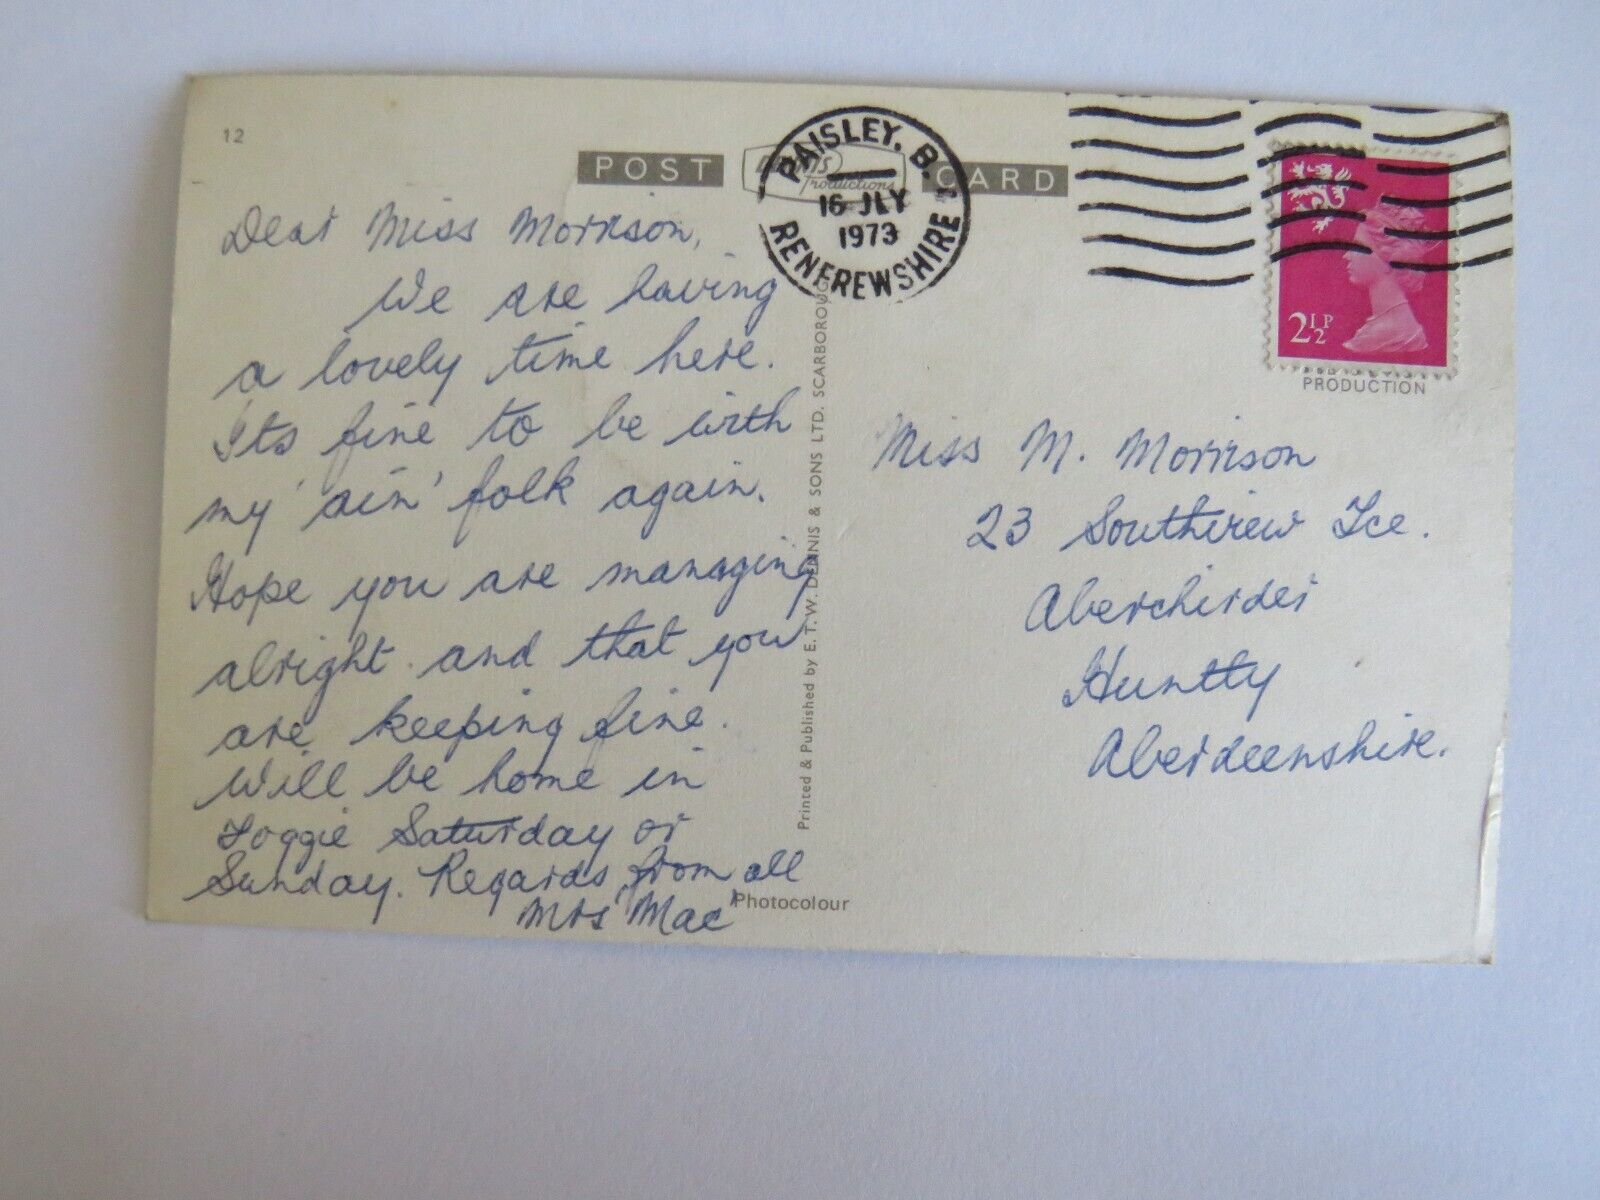 12
POST CARD
Productions
PAISLEY. B.
16 JLY
1973
RENFREWSHIRE
2½P
PRODUCTION
Dear Miss Morrison,
We are having
a lovely time here.
Its fine to be with
my 'ain' folk again.
Hope you are managing
alright and that you
are keeping fine.
Will be home in
Foggie Saturday or
Sunday. Regards from all
Mrs Mac
Printed & Published by E.T.W. DENNIS & SONS LTD. SCARBOROUGH
Photocolour
Miss M. Morrison
23 Southview Tce.
Aberchirder
Huntly
Aberdeenshire.